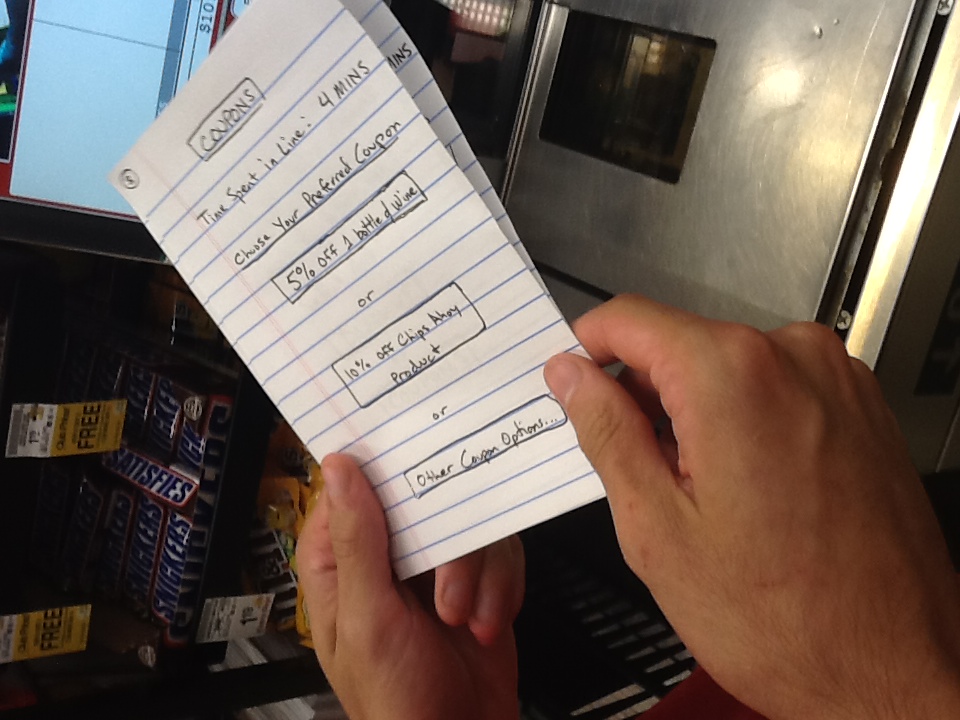 Club Price!
FREE
1.79
Club Price!
FREE
SNICKERS
SNICKERS
SNICKERS
SNICKERS
1.79
$10
5
COUPONS
Time Spent in Line: 4 MINS
Choose Your Preferred Coupon
5% OFF 1 bottled Wine
or
10% OFF Chips Ahoy
Product
or
Other Coupon Options...
MINS